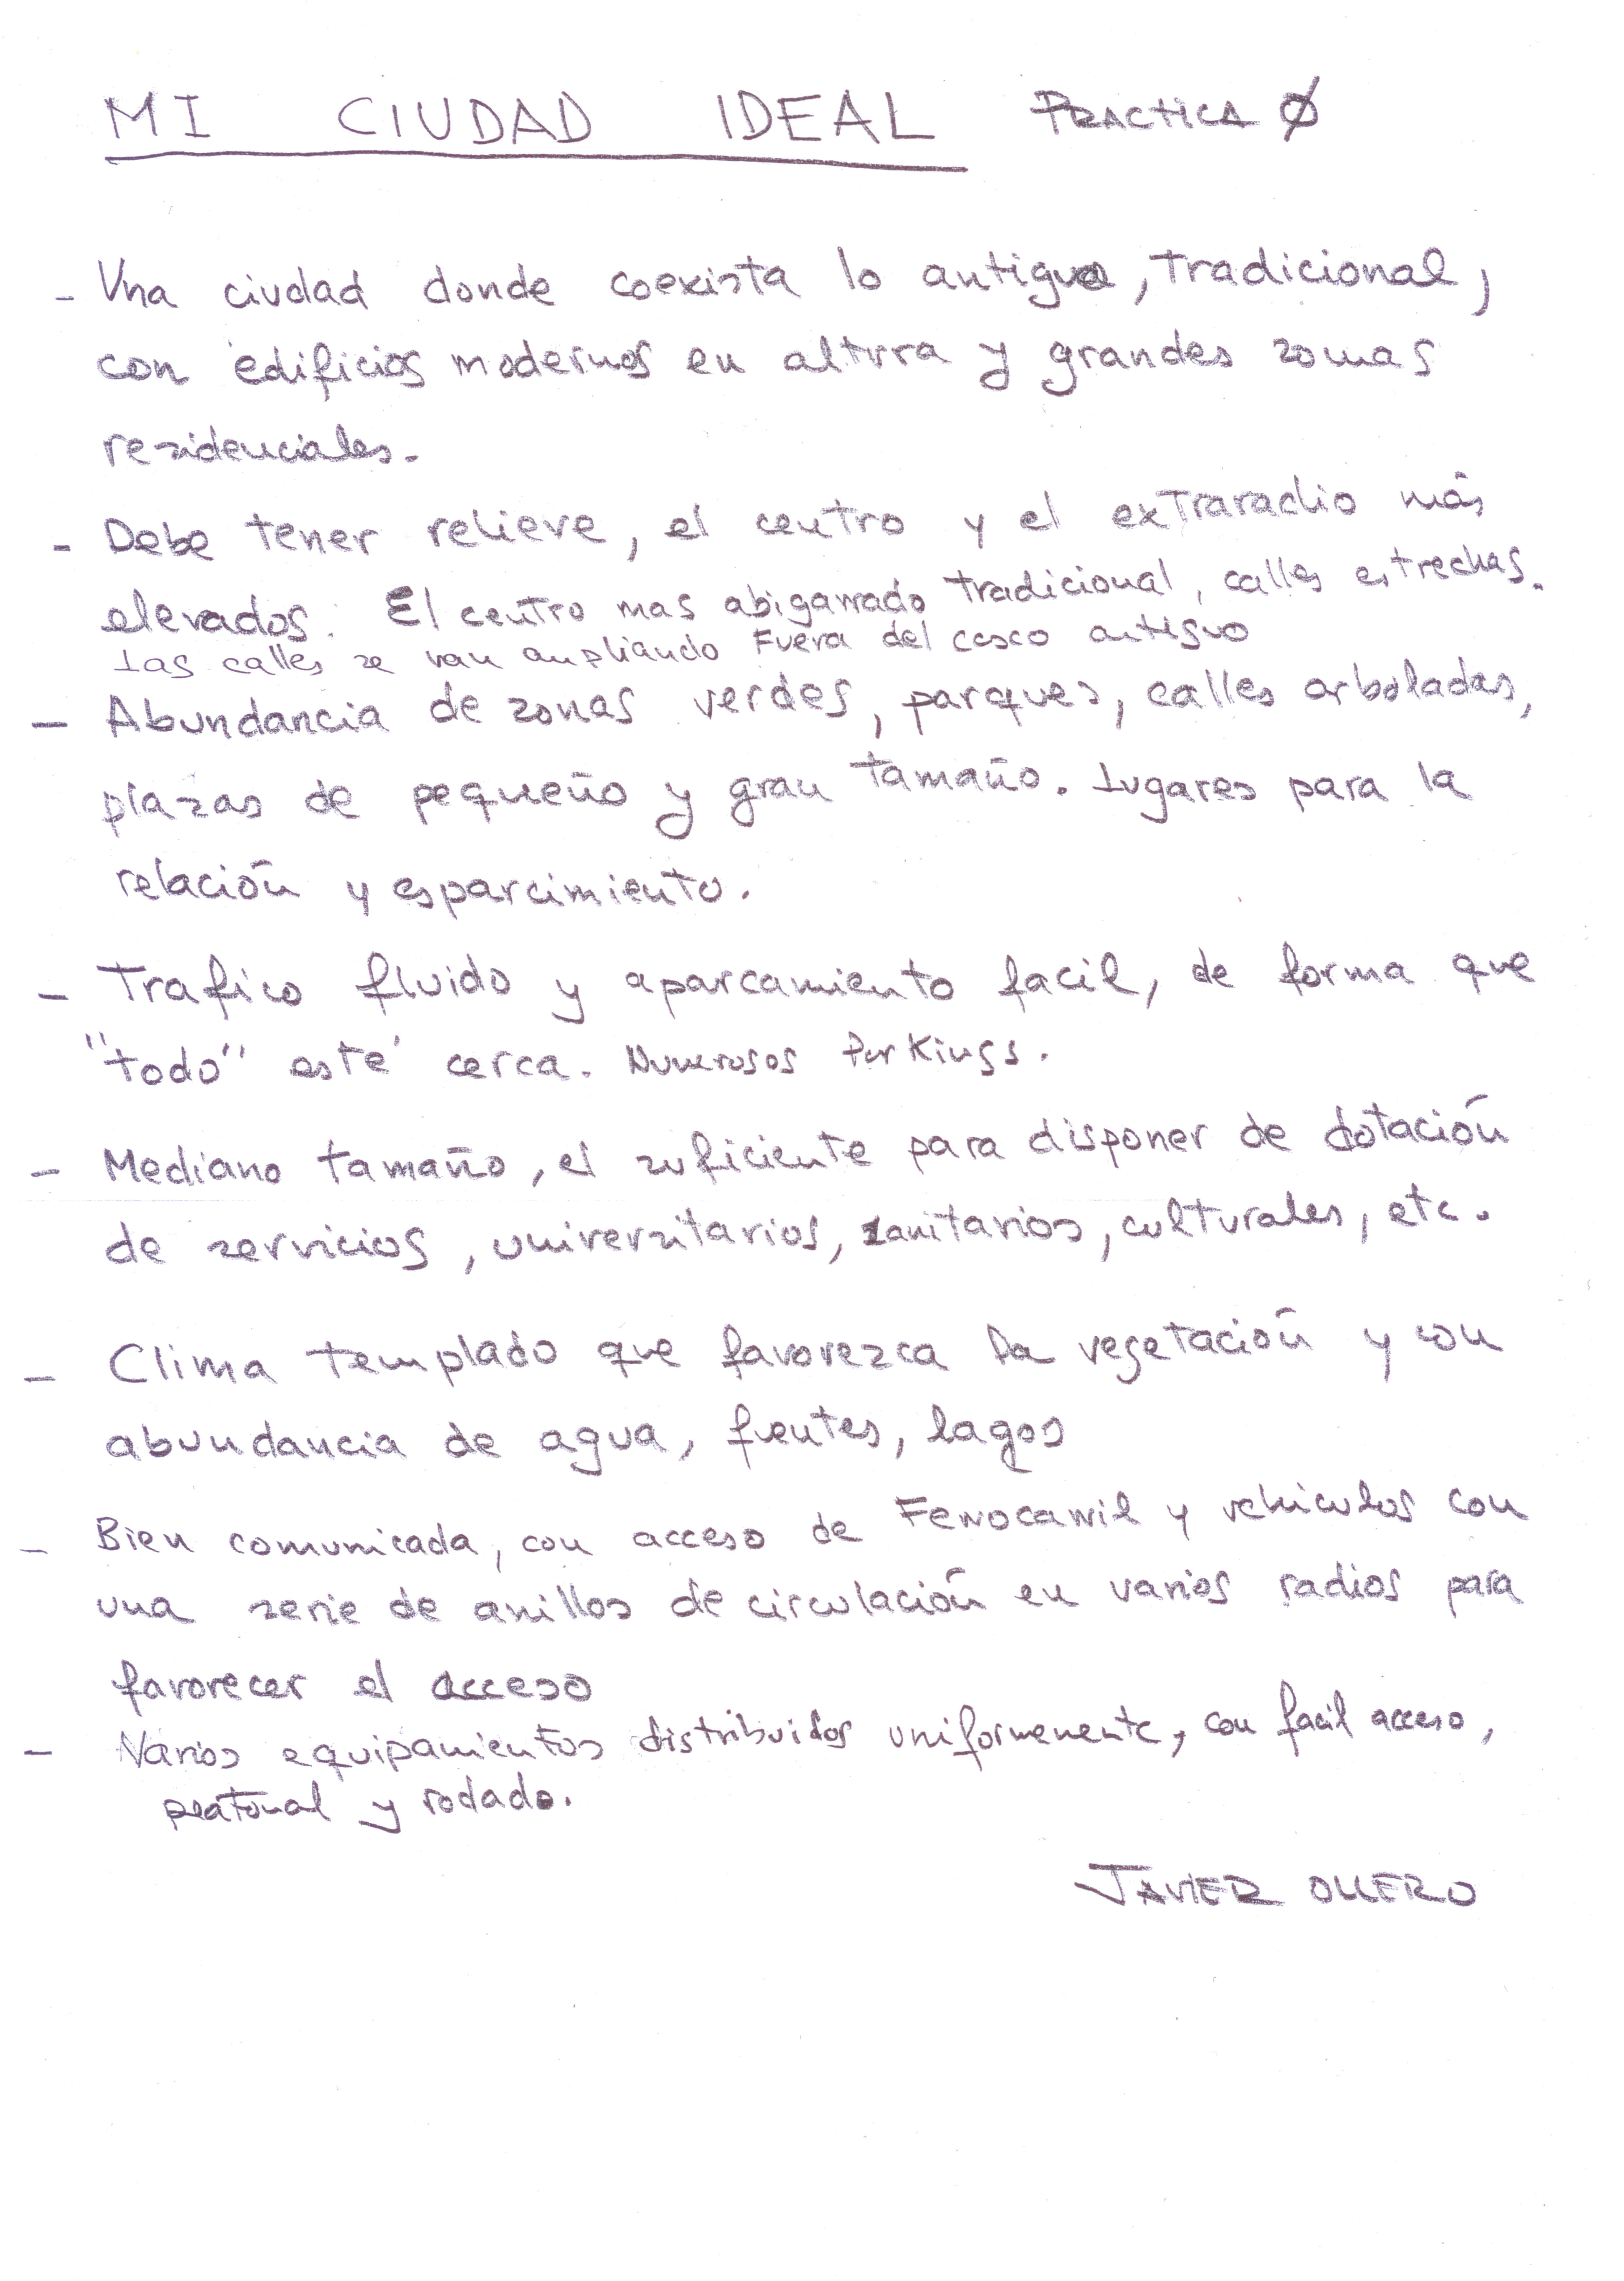 MI CIUDAD IDEAL PRACTICA Ø
- Una ciudad donde coexista lo antiguo, tradicional,
con edificios modernos en altura y grandes zonas
residenciales.
- Debe tener relieve, el centro y el extraradio más
elevados. El centro mas abigarrado tradicional, calles estrechas.
Las calles se van ampliando Fuera del casco antiguo
- Abundancia de zonas verdes, parques, calles arboladas,
plazas de pequeño y gran tamaño. Lugares para la
relación y esparcimiento.
- Trafico fluido y aparcamiento facil, de forma que
"todo" esté cerca. Numerosos Parkings.
- Mediano tamaño, el suficiente para disponer de dotación
de servicios, universitarios, sanitarios, culturales, etc.
- Clima templado que favorezca la vegetación y con
abundancia de agua, fuentes, lagos
- Bien comunicada, con acceso de Ferrocarril y vehiculos con
una serie de anillos de circulación en varios radios para
favorecer el acceso
- Varios equipamientos distribuidos uniformemente, con facil acceso,
peatonal y rodado.
JAVIER OLLERO